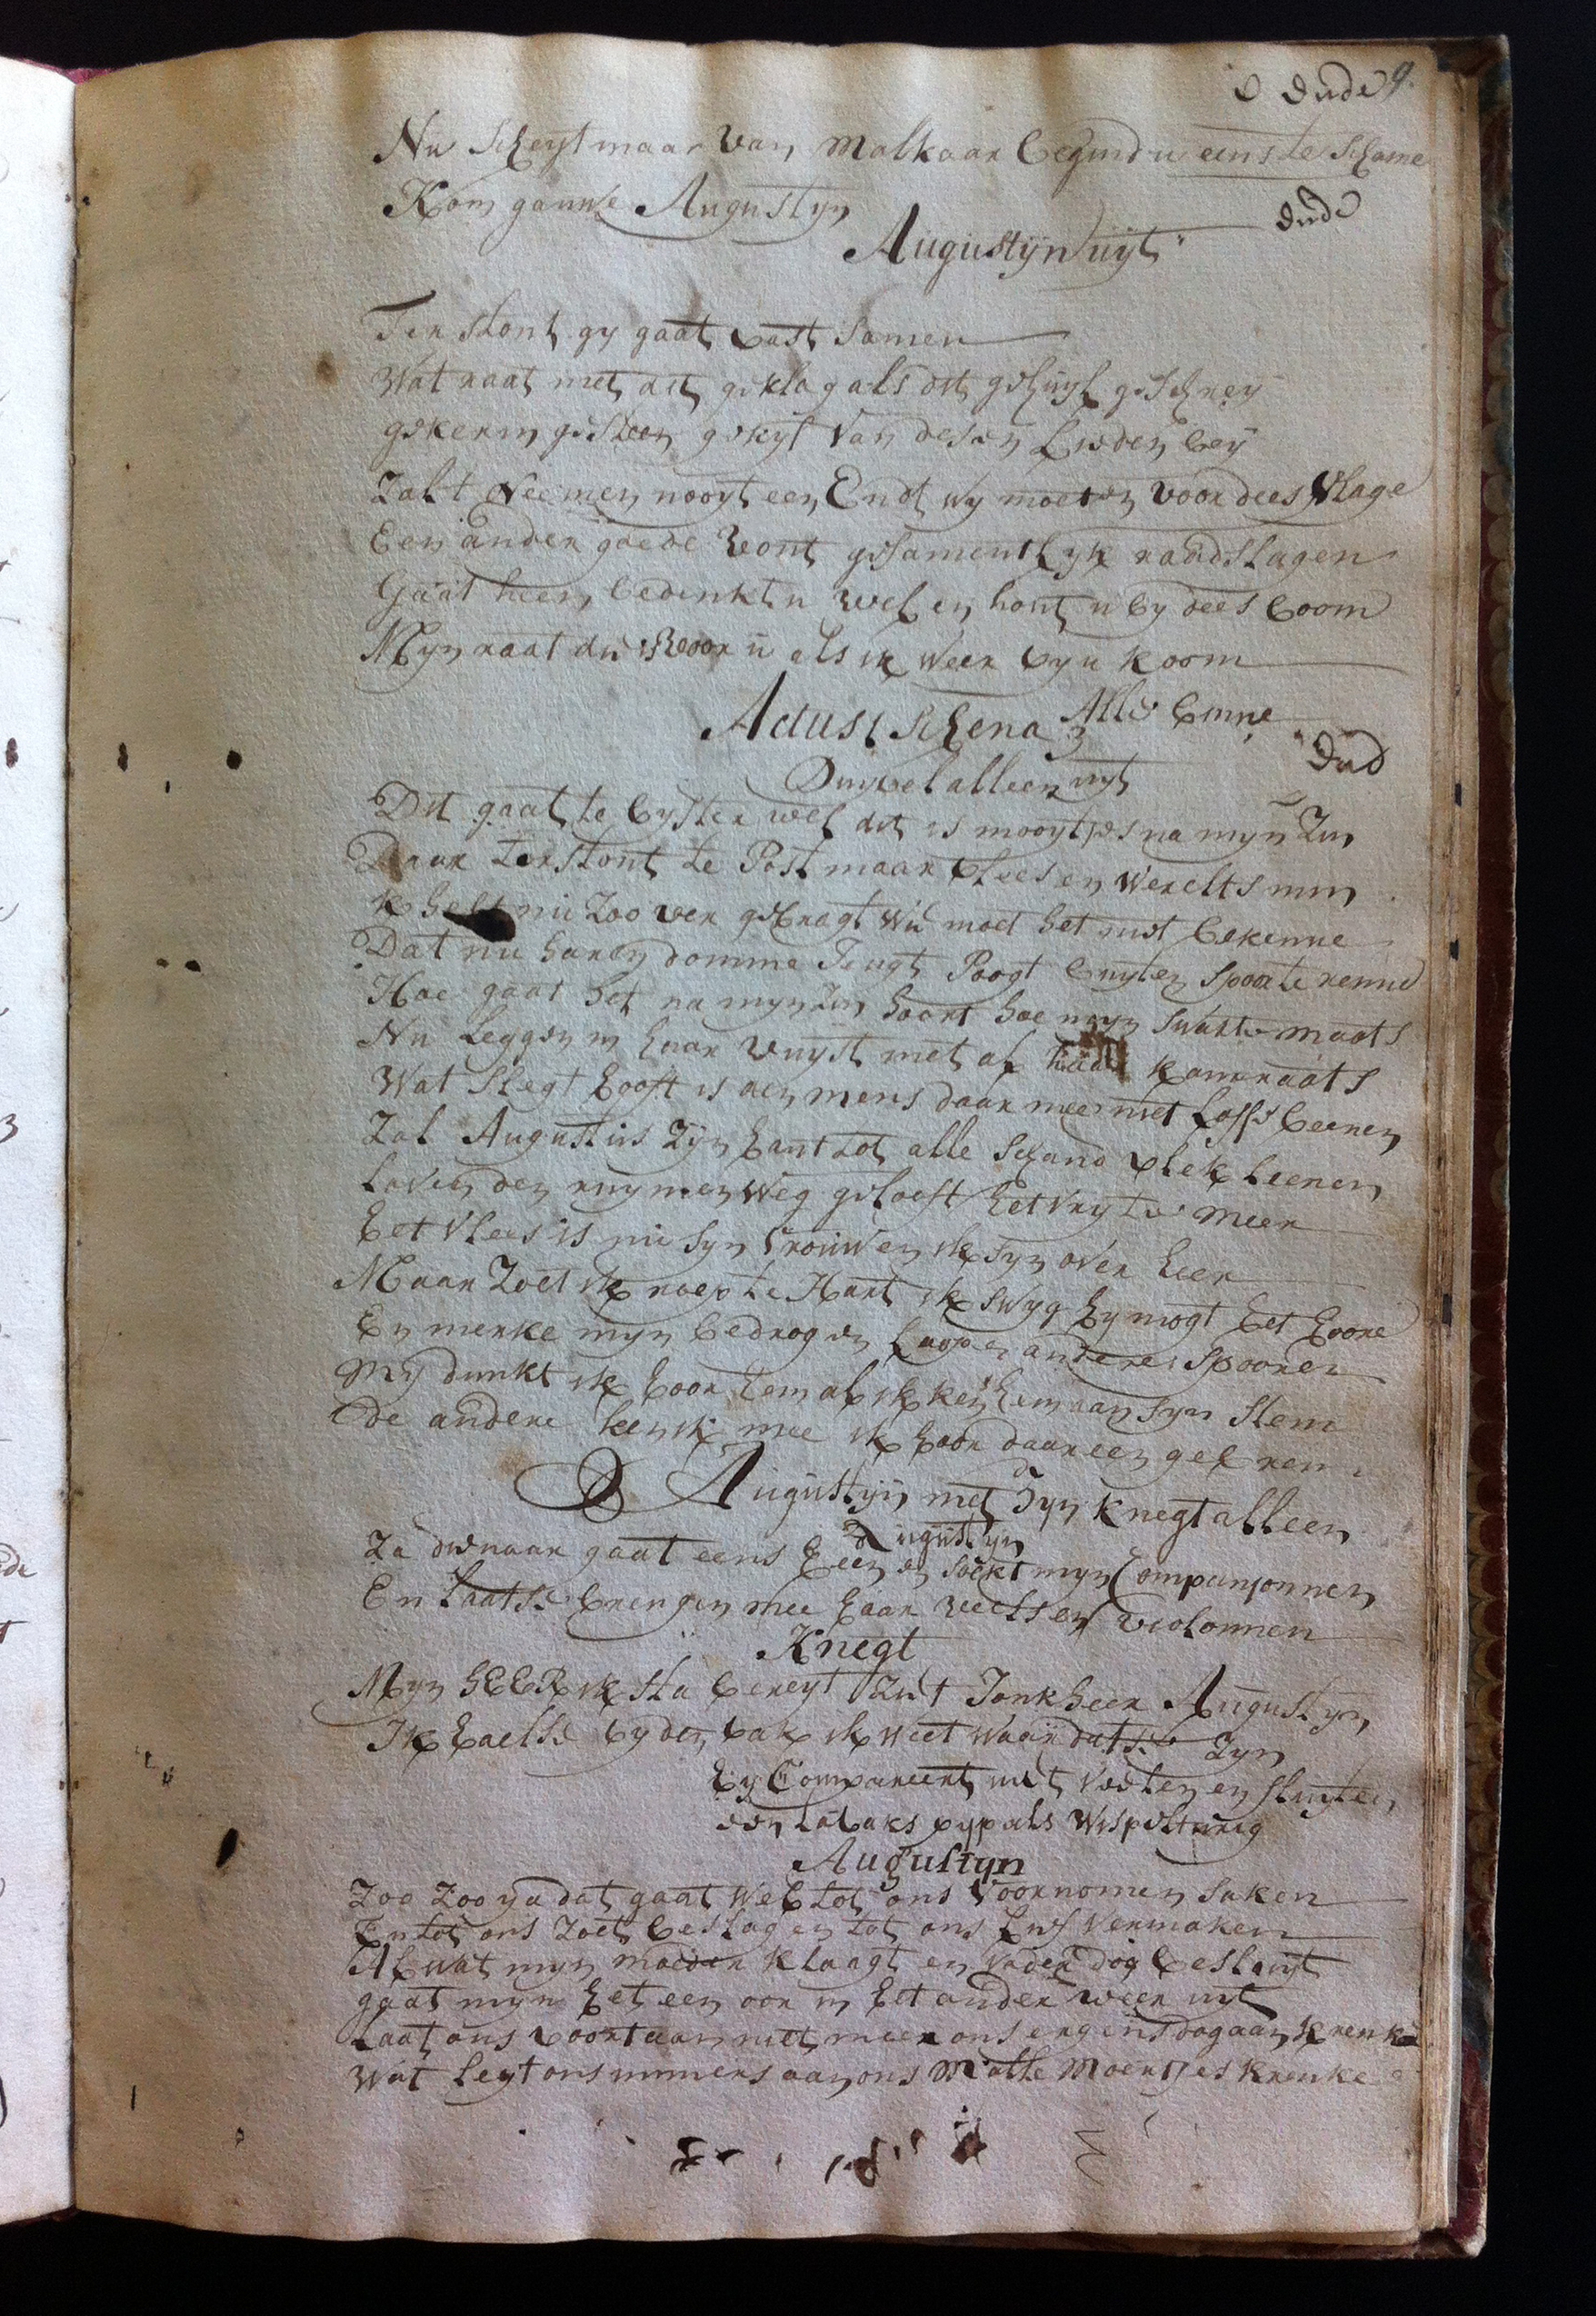 9
Nu scheyt maar van malkaar begind u eens te schame
Kom gauwe Augustyn
Augustyn uyt
Ter stont gy gaat vast samen
Wat raat met dit geklag als dit gehuyl geschrey
gekerm gesteen gekyf van desen lieden bey
Zal t neemen nooyt een Endt wy moeten voor dees vlage
Een ander goede vont gesamentlyk raadslagen
Gaat heen bedenkt u wel en hout u by dees boom
Myn raat die is voor u als ik weer by u koom
Alle binne
Actus 1 schena 3
Duyvel alleen uyt
Dit gaat te byster wel dit is mooytjes na myn zin
Daar terstont te Post maar vlees en werelts min
k heb nu zoo ver gebragt wie moet het niet bekenne
Dat nu haren domme Jeugt Poogt buyten spoor te renne
Hoe gaat het na myn zin hoort hoe myn swarte maats
Nu leggen in haar vuyst met al haar kameraats
Wat slegt hooft is den mens daar mee met losse beenen
Zal Augustus zyn hant tot alle schand vlek leenen
den ruymen weg gelooft het vry te meer
het vlees is nu syn vrouw en ik syn over heer
Maar zoet ik roep te Hart ik swyg hy mogt het hoore
En merke myn bedrog en loopen andere spooren
My dunkt ik hoor hem al ik ken hem aan syn stem
de andere ken ik mee ik hoor daar een
Augustyn met Zyn knegt alleen
Augustyn
Za dienaar gaat eens heen en soekt myn Companjonnen
En laatse brengen mee haar veelsen violonnen
Knegt
Myn HEER ik sta bereyt Jonkheer Augustyn
Ik haelse by den bak ik weet waar datse Zyn
hy Compareert met veelen en fluyten
een tabaks pyp als wispelturig
Augustyn
Zoo zoo ya dat gaat wel tot ons voornomen saken
En tot ons zoet beslag en tot ons lust vermaken
Al wat myn moeder klaagt en vader dog besluyt
gaat myn het een oor in het ander weer uyt
Laat ons voortaan niet meer ons ergens dog aan krenke
Wat leyt ons immers aan ons Malle Moertjes krenke